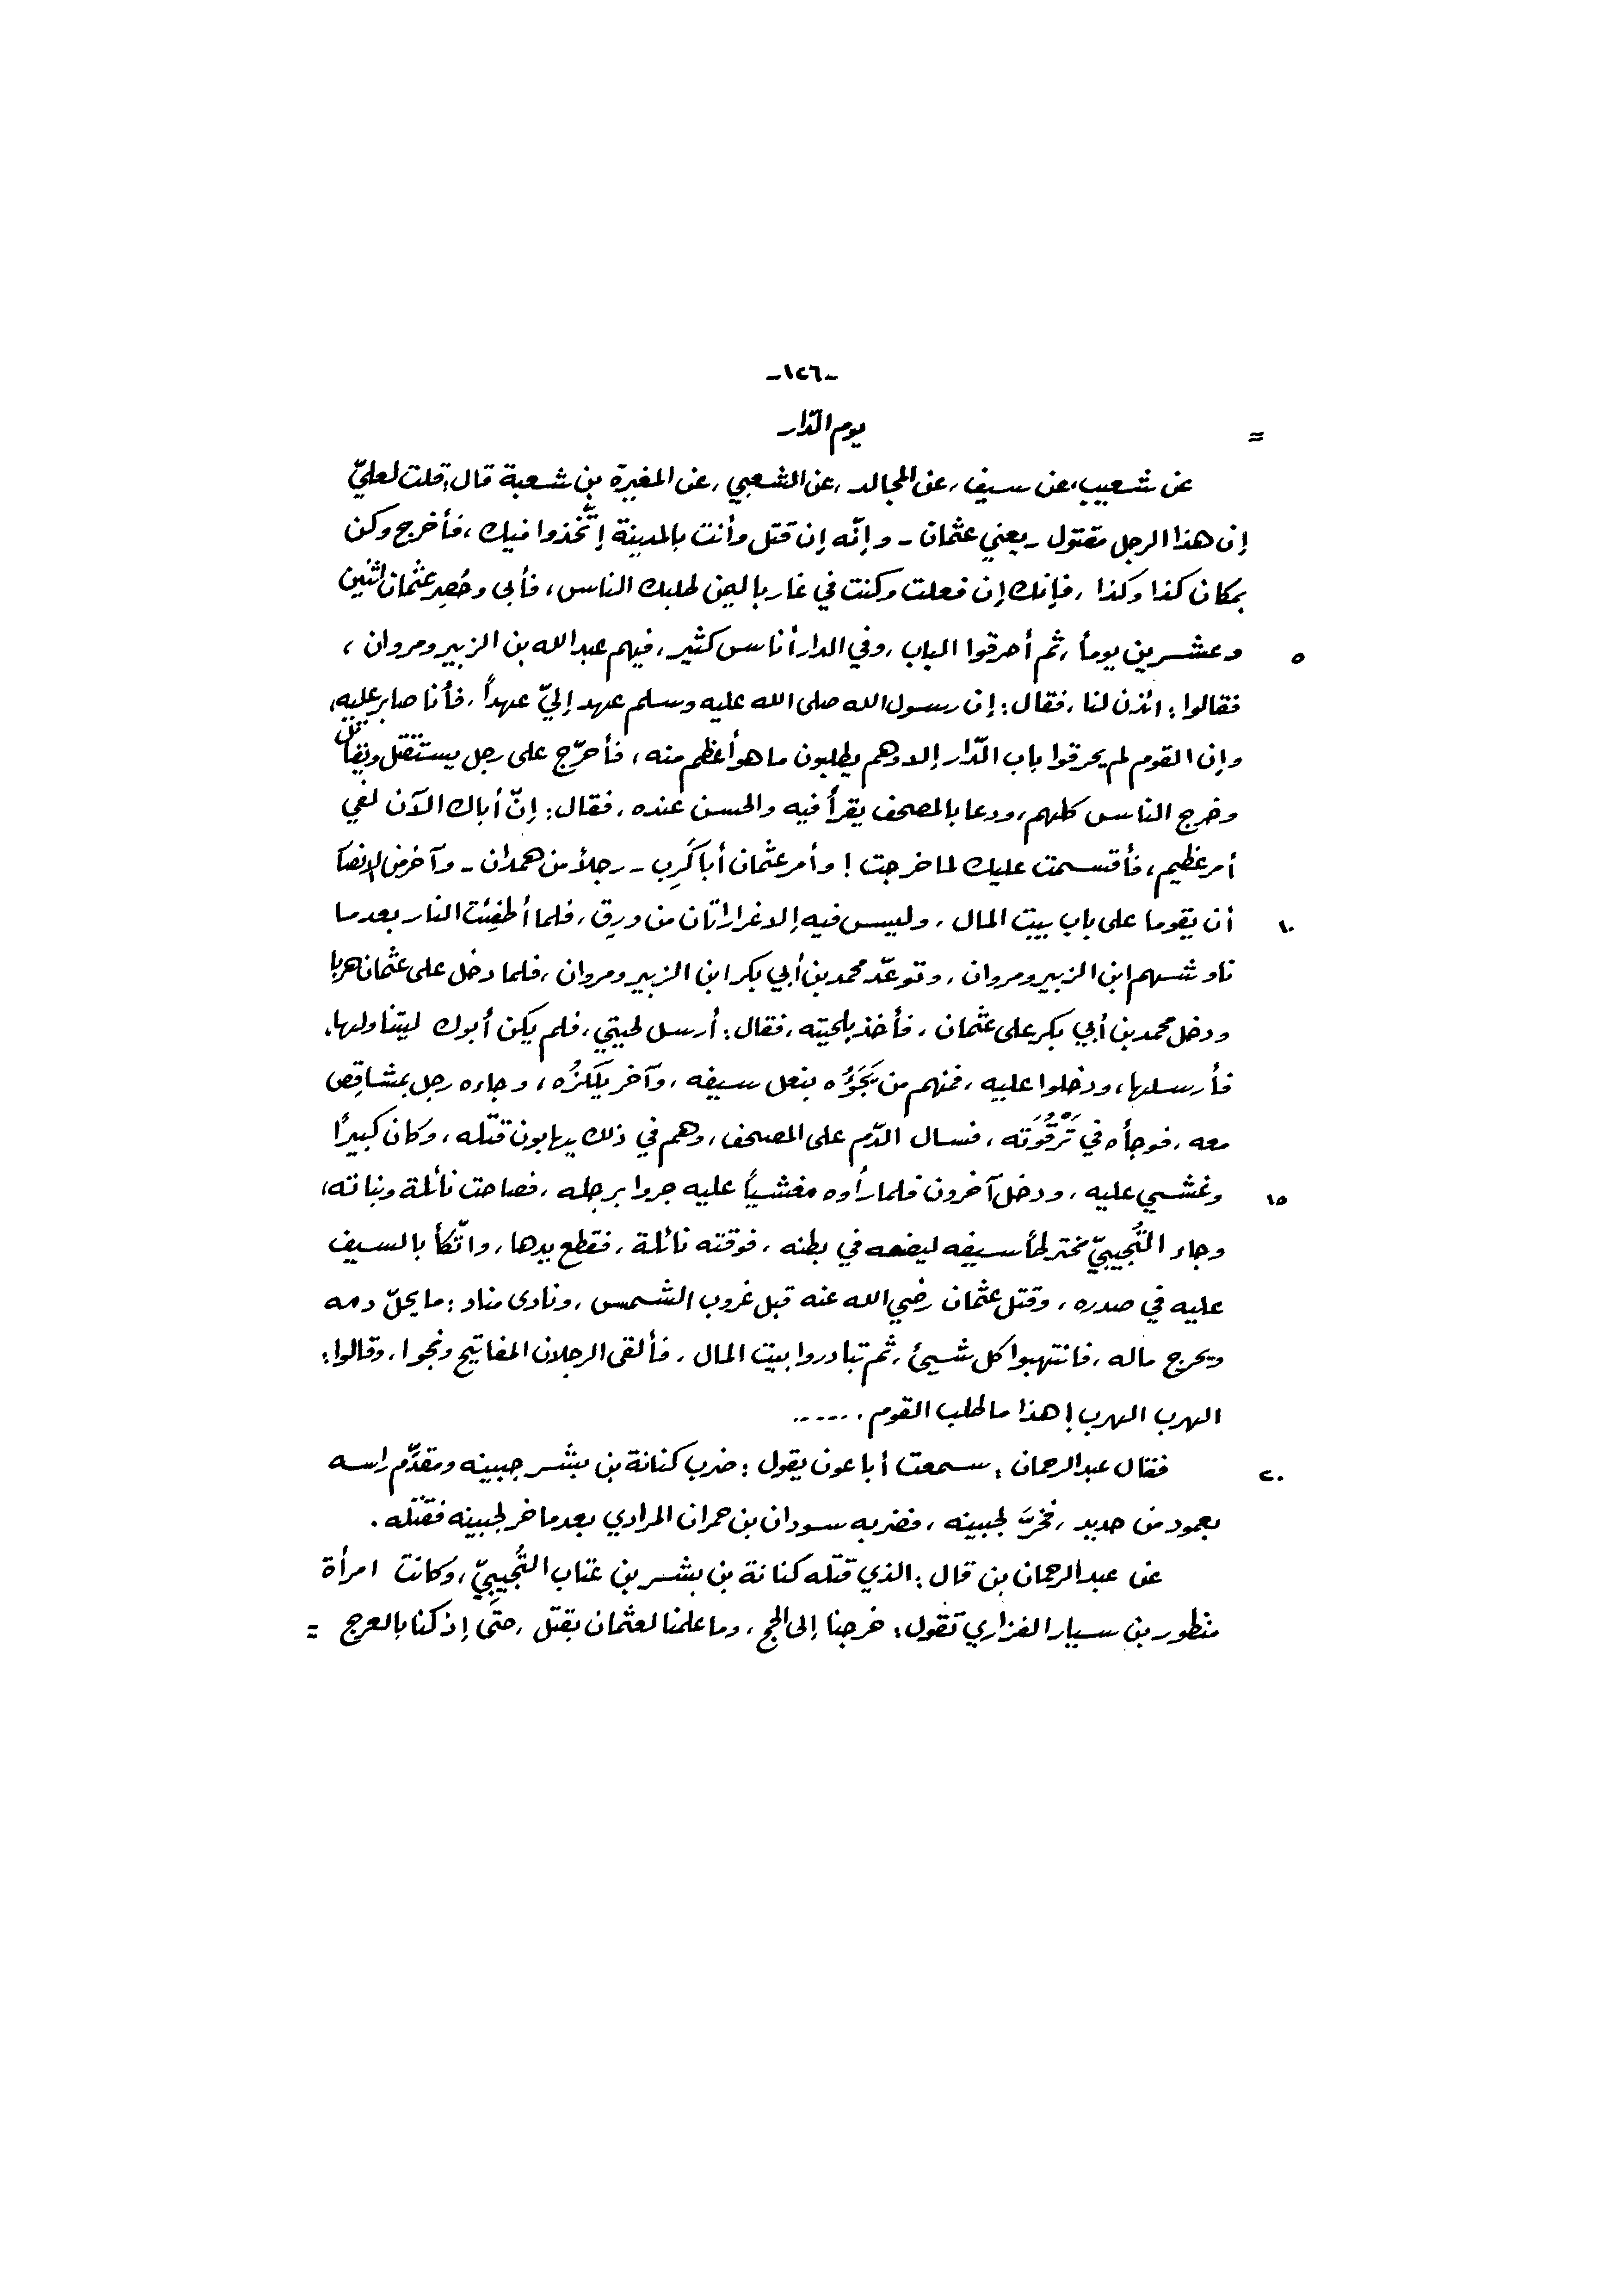 -١٢٦-
= يوم الدّار
عن شعيب، عن سيف، عن المجالد، عن الشعبي، عن المغيرة بن شعبة قال: قلت لعليّ
إن هذا الرجل مقتول - يعني عثمان - وإنّه إن قتل وأنت بالمدينة إتّخذوا فيك، فأخرج وكن
بمكان كذا وكذا، فإنك إن فعلت وكنت في غار باليمن لطلبك الناس، فأبى وحُصِر عثمان اثنين
٥ وعشرين يوماً، ثم أحرقوا الباب، وفي الدار أناس كثير، فيهم عبد الله بن الزبير ومروان،
فقالوا: ائذن لنا، فقال: إن رسول الله صلى الله عليه وسلم عهد إليّ عهداً، فأنا صابر عليه،
وإن القوم لم يحرقوا باب الدّار إلا وهم يطلبون ما هو أعظم منه، فأحرّج على رجل يستقتل ويقاتل
وخرج الناس كلهم، ودعا بالمصحف يقرأ فيه والحسن عنده، فقال: إنّ أباك الآن لفي
أمر عظيم، فأقسمت عليك لما خرجت! وأمر عثمان أبا كَرِب - رجلاً من همدان - وآخر من الانصا
١٠ أن يقوما على باب بيت المال، وليس فيه إلا غرارتان من ورِق، فلما أطفِئت النار بعدما
ناوشهم ابن الزبير ومروان، وتوعّد محمد بن أبي بكر ابن الزبير ومروان، فلما دخل على عثمان هربا
ودخل محمد بن أبي بكر على عثمان، فأخذ بلحيته، فقال: أرسل لحيتي، فلم يكن أبوك ليتناولها،
فأرسلها، ودخلوا عليه، فمنهم من يَجَؤُه بنعل سيفه، وآخر يَلكزُه، وجاءه رجل بمشاقِص
معه، فوجأه في تَرْقُوَته، فسال الدّم على المصحف، وهم في ذلك يهابون قتله، وكان كبيراً
١٥ وغشي عليه، ودخل آخرون فلما رأوه مغشياً عليه جروا برجله، فصاحت نائلة وبناته،
وجاء التُّجيبيّ مخترطاً سيفه ليضعه في بطنه، فوقته نائلة، فقطع يدها، واتّكأ بالسيف
عليه في صدره، وقتل عثمان رضي الله عنه قبل غروب الشمس، ونادى مناد: ما يحلّ دمه
ويحرج ماله، فانتهبوا كل شيئ، ثم تبادروا بيت المال، فألقى الرجلان المفاتيح ونجوا، وقالوا:
الهرب الهرب! هذا ما طلب القوم. .....
٢٠ فقال عبد الرحمان: سمعت أبا عون يقول: ضرب كنانة بن بشر جبينه ومقدّم راسه
بعمود من حديد، فخرَّ لجبينه، فضربه سودان بن حمران المرادي بعدما خر لجبينه فقتله.
عن عبد الرحمان بن قال: الذي قتله كنانة بن بشر بن عتاب التُّجيبيّ، وكانت امرأة
منظور بن سيار الفزاري تقول: خرجنا إلى الحج، وما علمنا لعثمان بقتل، حتى إذ كنا بالعرج =